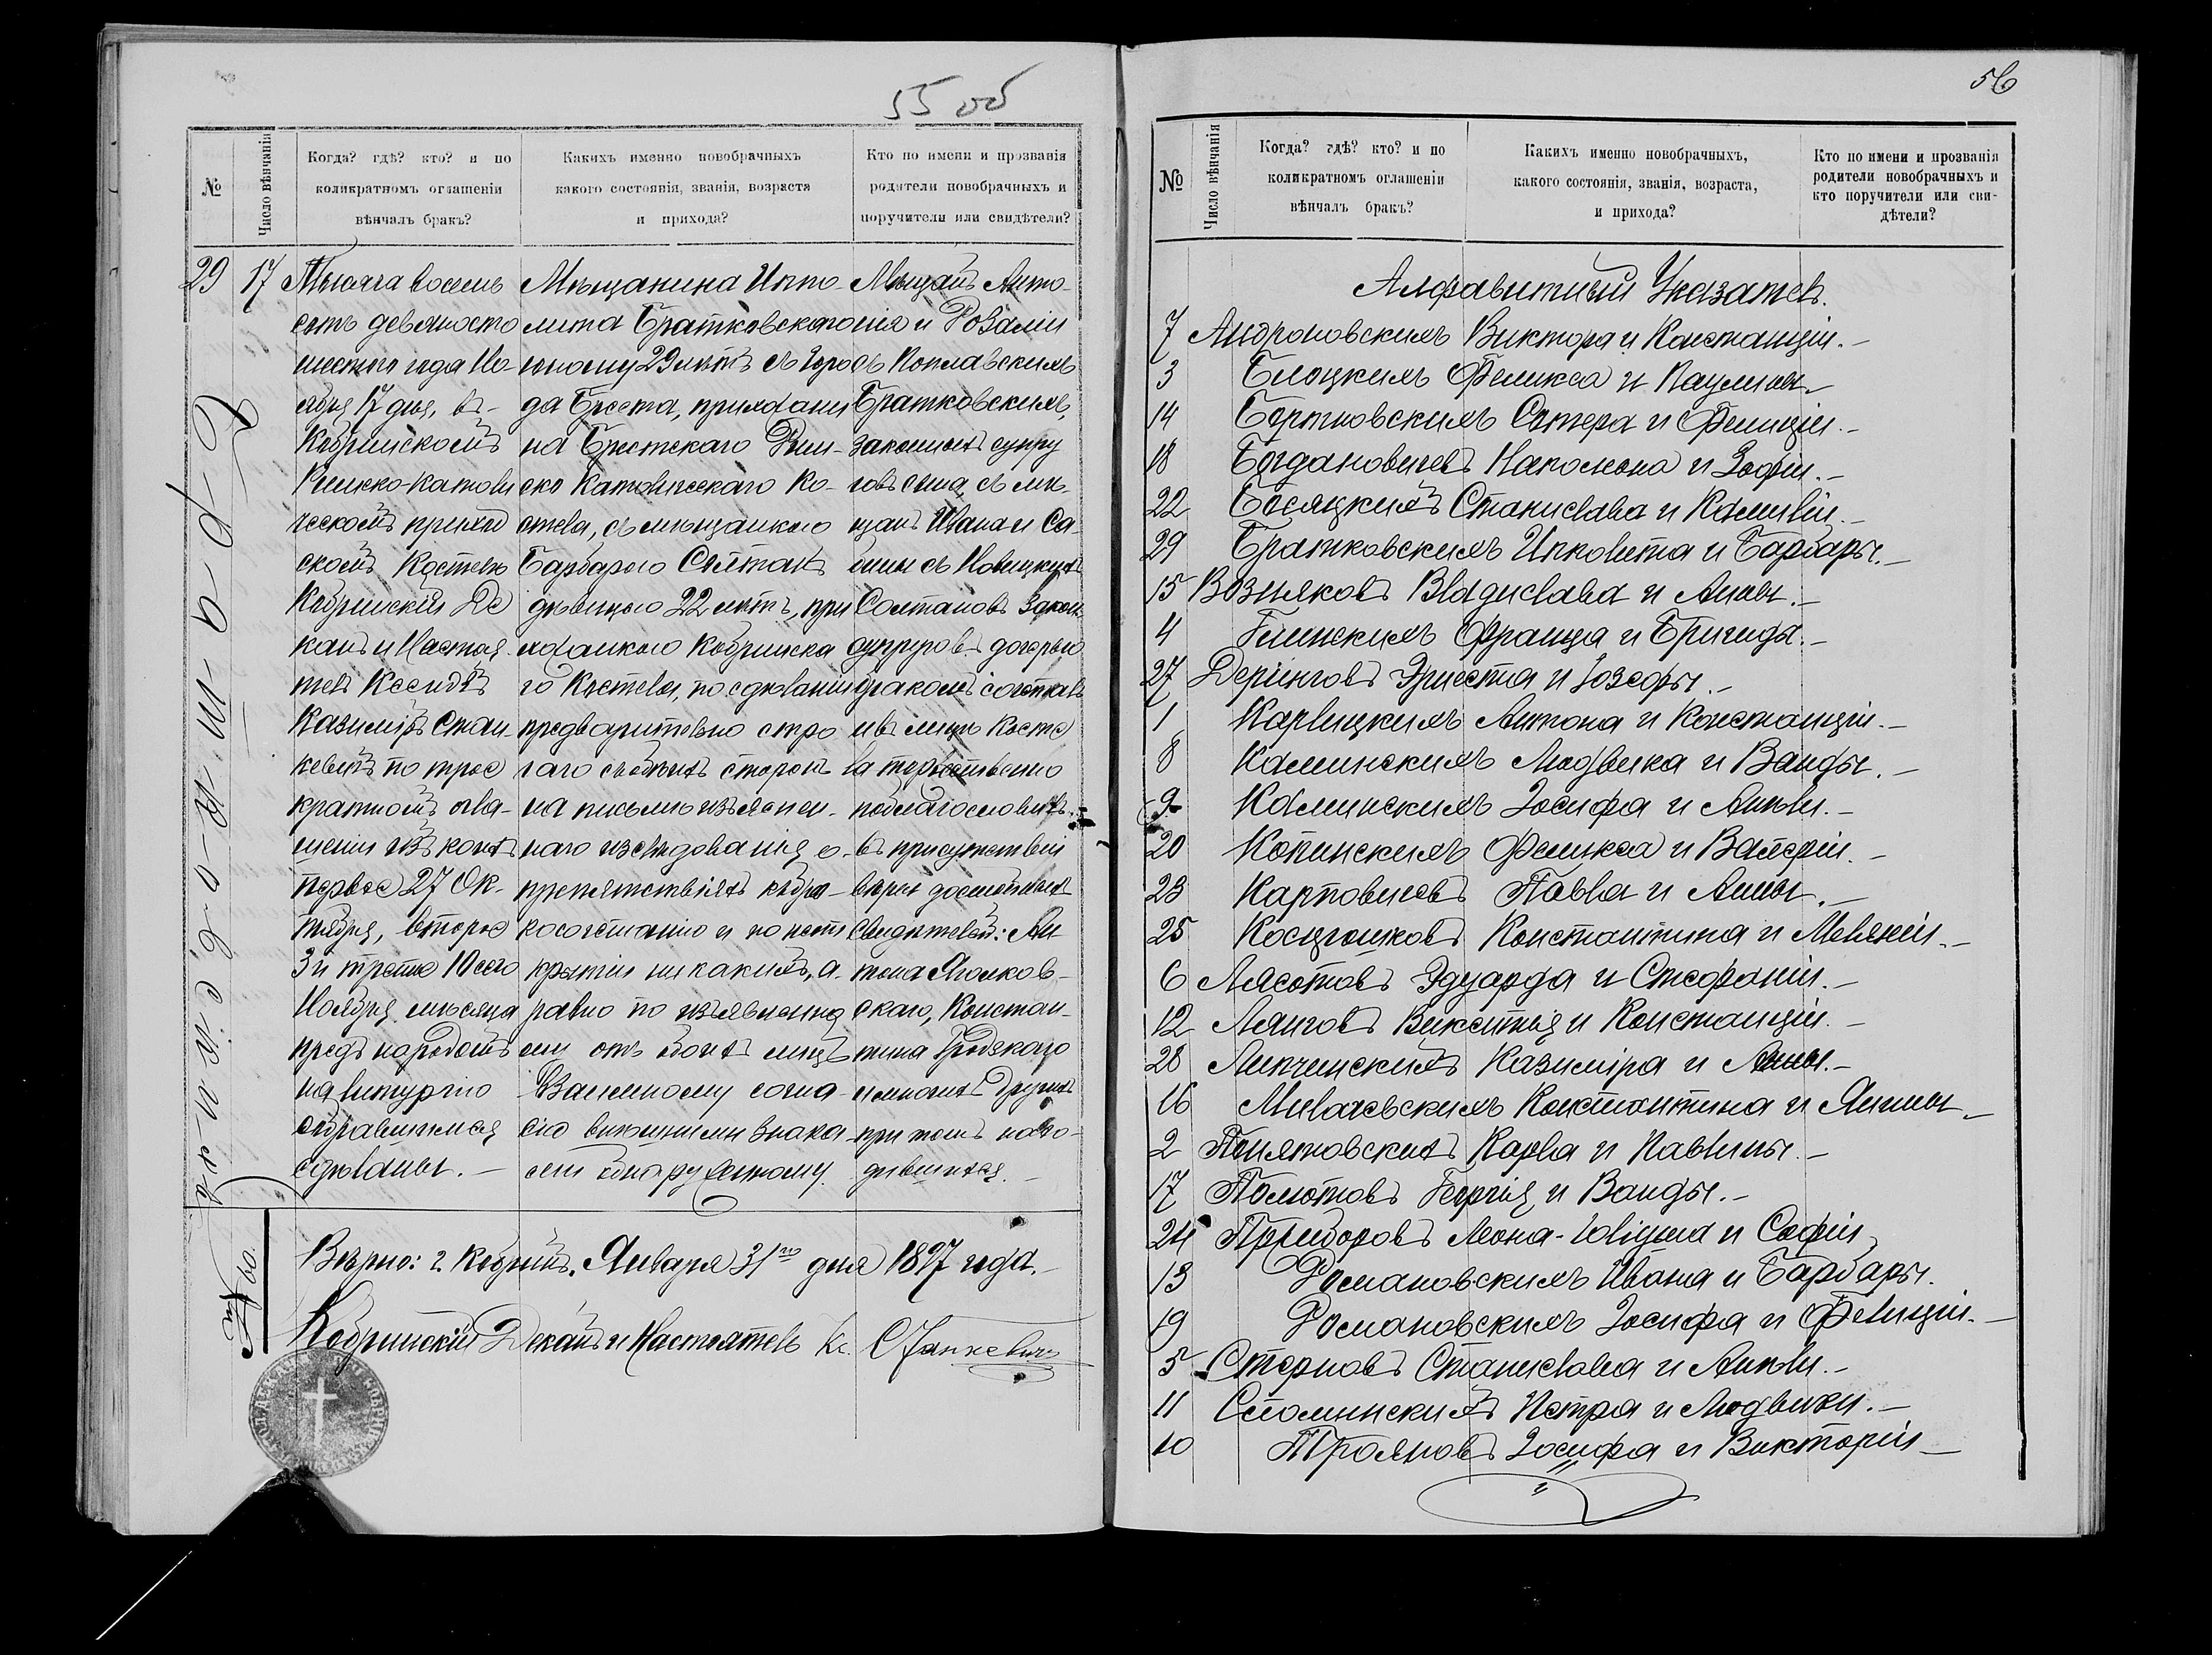 55 об
№
Число вѣнчанія
Когда? гдѣ? кто? и по
коликратномъ оглашеніи
вѣнчалъ бракъ?
Какихъ именно новобрачныхъ
какого состоянія, званія, возраста
и прихода?
Кто по имени и прозванія
родители новобрачныхъ и
поручители или свидѣтели?
29
17
Тысяча восемь
сотъ девяносто
шестого года Но-
ября 17 дня, въ
Кобринскомъ
Римско-Катови
ческомъ приход
скомъ Костелѣ
Кобринскій Де
канъ и Настоя
тель Ксендзъ
Казиміръ Стан-
кевичъ по трое
кратномъ огла-
шеніи изъ коихъ
первое 27 Ок-
тября, второе
3 и третье 10 сего
Ноября мѣсяца
предъ народомъ
на литургію
собравшимся
сдѣланы. —
Мѣщанина Иппо-
лита Братковского
юному 29 лѣтъ съ горо
да Бреста, прихожани
на Брестскаго Рим-
ско Католическаго Ко-
стела, съ мѣщанкою
Барбарою Солтанъ
дѣвицею 22 лѣтъ, при
хожанкою Кобринска
го Костела, по сдѣланіи
предварительно стро
гаго съ обоихъ сторонъ
на письмѣ изъяснен-
наго изслѣдованія о
препятствіяхъ къ бра-
косочетанію и по неот
крытіи никакихъ, а
равно по изъявленно
му отъ обоихъ лицъ
Взаимному согла-
сію внѣшними знака-
ми обнаруженному.
Мѣщанъ Анто-
нія и Розаліи
съ Поплавскихъ
Братковскихъ,
законныхъ супру
говъ сына, съ мѣ-
щанъ Ивана и Са
бины съ Новицкихъ
Солтановъ Закон.
супруговъ дочерью
бракомъ сочеталъ
и въ лицѣ Косте
ла торжественно
поблагословилъ.
въ присутствіи
вѣры достойныхъ
свидѣтелей: Ан
тона
скаго, Констан-
тина Гродзкаго
и многихъ другихъ
при томъ нахо-
дившихся. —
Вѣрно: г. Кобринъ. Января 31го дня 1897 года.
Кобринскій Деканъ и Настоятель Кс. Станкевичъ
56
№
Число вѣнчанія
Когда? гдѣ? кто? и по
коликратномъ оглашеніи
вѣнчалъ бракъ?
Какихъ именно новобрачныхъ,
какого состоянія, званія, возраста,
и прихода?
Кто по имени и прозванія
родители новобрачныхъ и
кто поручители или сви-
дѣтели?
Алфавитный Указатель.
7 Андроновскихъ Виктора и Констанціи. —
3 Блоцкихъ Феликса и Паулины —
14 Бортновскихъ Сотера и Фелиціи. —
18 Богдановичевъ Наполеона и Зофіи. —
22 Босяцкихъ Станислава и Камиліи. —
29 Братковскихъ Ипполита и Барбары. —
15 Возняковъ Владислава и Анны. —
4 Глинскихъ Франца и Бригиды. —
27 Дерінговъ Эрнеста и Іозефы. —
1 Карлицкихъ Антона и Констанціи. —
8 Каминскихъ Людвика и Ванды. —
9 Каминскихъ Іосифа и Анели. —
20 Копинскихъ Феликса и Валеріи. —
23 Карповичевъ Павла и Анны. —
25 Косцюшковъ Константина и Меляніи. —
6 Лясотовъ Эдуарда и Стефаніи. —
12 Ланговъ Викентія и Констанціи. —
28 Липчинскихъ Казиміра и Анны. —
16 Милачевскихъ Константина и Янины —
2 Понятовскихъ Карла и Павлины. —
17 Полютовъ Георгія и Ванды. —
24 Приборовъ Леона-Юліуша и Софіи
13 Романовскихъ Ивана и Барбары.
19 Романовскихъ Іосифа и Фелиціи. —
5 Стерновъ Станислава и Анели. —
11 Сполинскихъ Петра и Людвики. —
10 Трояновъ Іосифа и Викторіи —